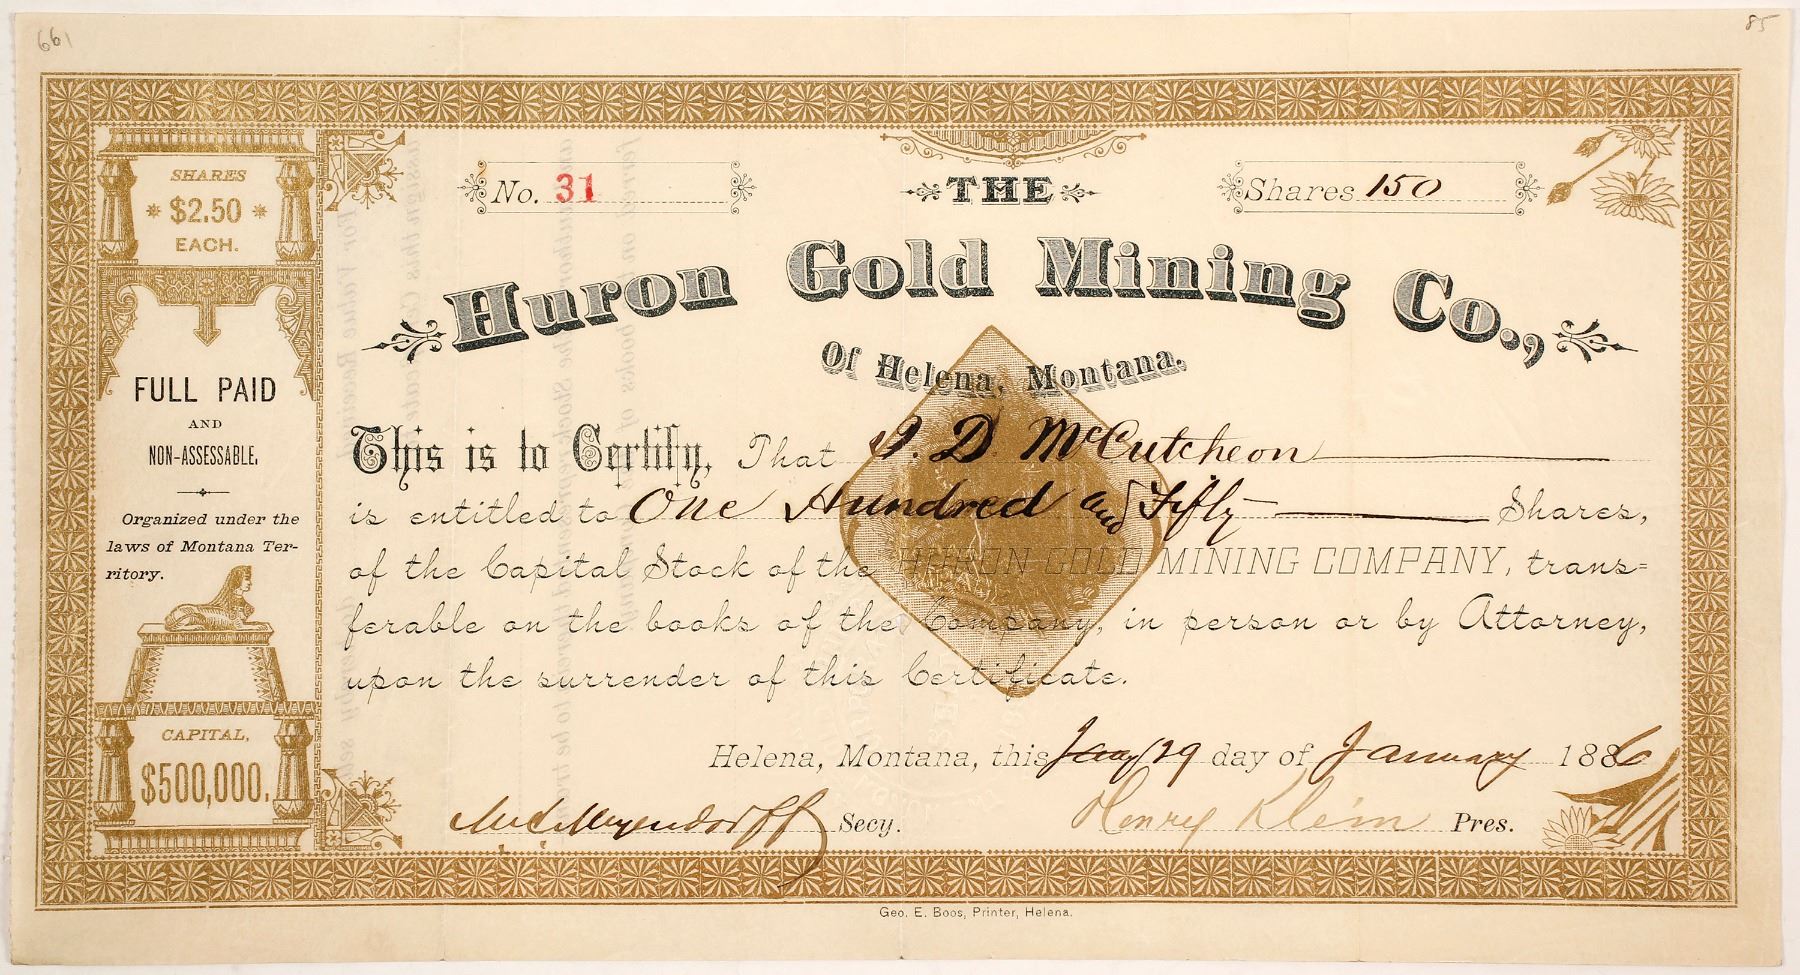 661
85
SHARES
$2.50
EACH.
FULL PAID
AND
NON-ASSESSABLE.
Organized under the
laws of Montana Ter-
ritory.
CAPITAL,
$500,000.
No. 31
THE
Shares 150
Huron Gold Mining Co.,
Of Helena, Montana.
This is to Certify, That J. D. McCutcheon
is entitled to One Hundred and Fifty Shares,
of the Capital Stock of the HURON GOLD MINING COMPANY, trans=
ferable on the books of the Company, in person or by Attorney,
upon the surrender of this Certificate.
Helena, Montana, this 29 day of January 1886
Meyendorff Secy.
Henry Klein Pres.
Geo. E. Boos, Printer, Helena.